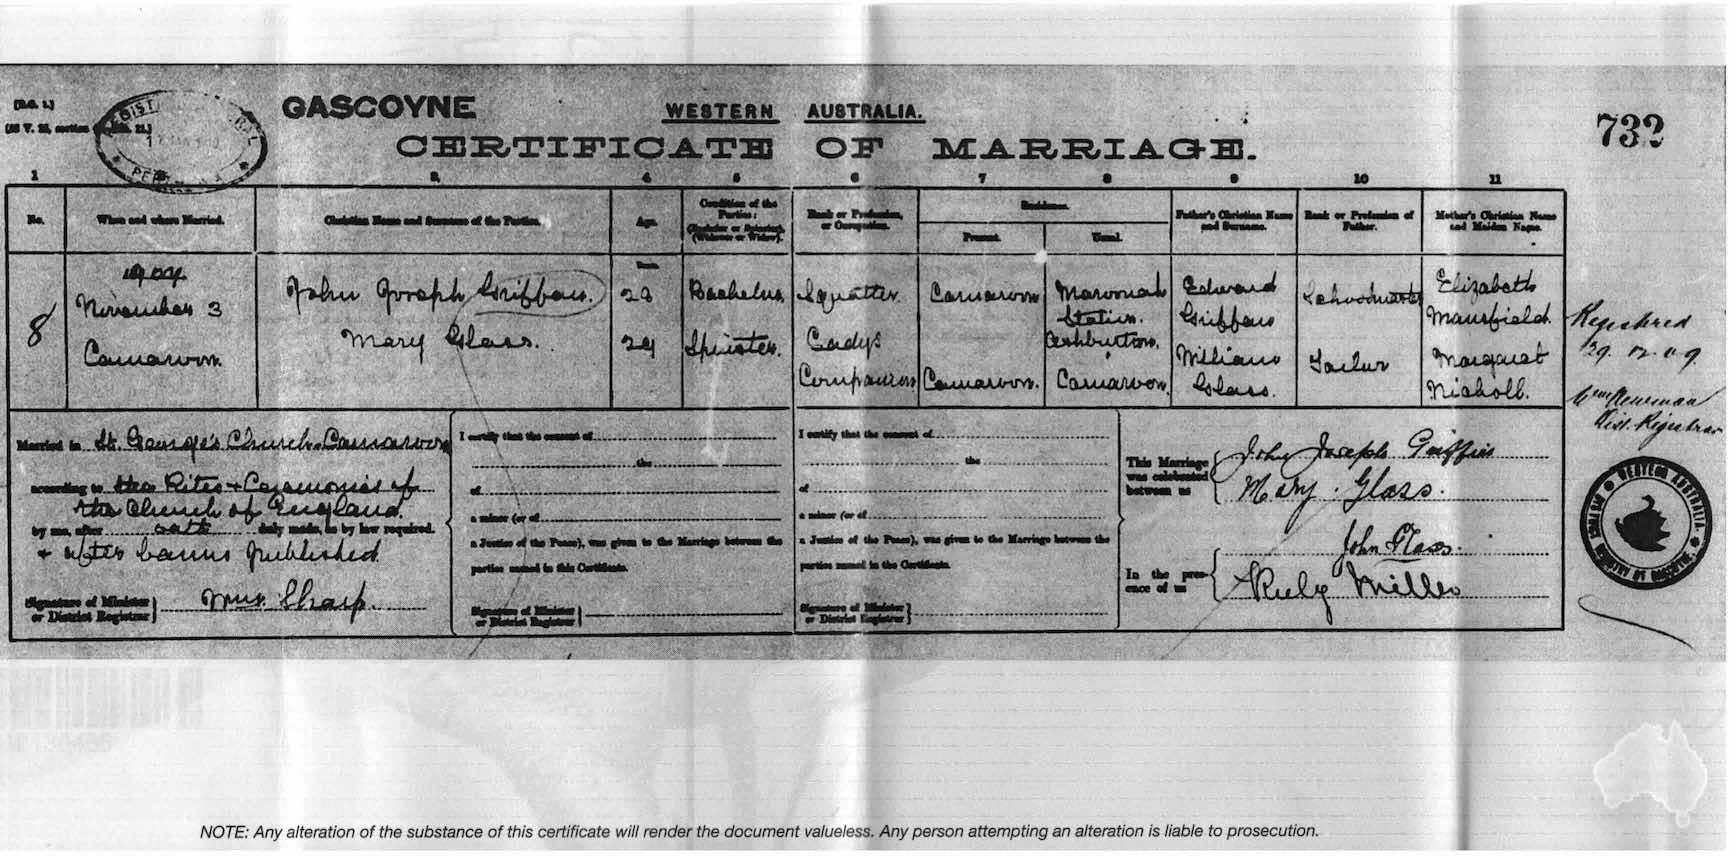 (R.G. 1.)
GASCOYNE
WESTERN AUSTRALIA.
CERTIFICATE OF MARRIAGE.
732
1 3 4 5 6 7 8 9 10 11
No.
When and where Married.
Christian Name and Surname of the Parties.
Age.
Condition of the Parties:
(Bachelor or Spinster),
(Widower or Widow).
Rank or Profession, or Occupation.
Residence.
Present.
Usual.
Father's Christian Name and Surname.
Rank or Profession of Father.
Mother's Christian Name and Maiden Name.
8
1909
November 3
Carnarvon
John Joseph Griffans
28
Bachelor
Squatter
Carnarvon
Maroonah Station Ashburton
Edward Griffans
Schoolmaster
Elizabeth Mansfield
Mary Glass.
24
Spinster
Ladys Companion
Carnarvon
Carnarvon
William Glass
Tailor
Margaret Nicholl.
Registered
29. 12. 09
Wm Newman
Dist. Registrar
Married in St. George's Church Carnarvon
according to the Rites + Ceremonies of
the Church of England
by me, after oath duly made, as by law required.
+ after banns published
Signature of Minister or District Registrar} Wm. Sharp
I certify that the consent of
the
of
a minor (or of
a Justice of the Peace), was given to the Marriage between the
parties named in this Certificate.
Signature of Minister or District Registrar}
I certify that the consent of
the
of
a minor (or of
a Justice of the Peace), was given to the Marriage between the
parties named in the Certificate.
Signature of Minister or District Registrar}
This Marriage was celebrated between us
John Joseph Griffins
Mary Glass.
In the presence of us
John Glass.
Ruby Miller
WESTERN AUSTRALIA
NOTE: Any alteration of the substance of this certificate will render the document valueless. Any person attempting an alteration is liable to prosecution.